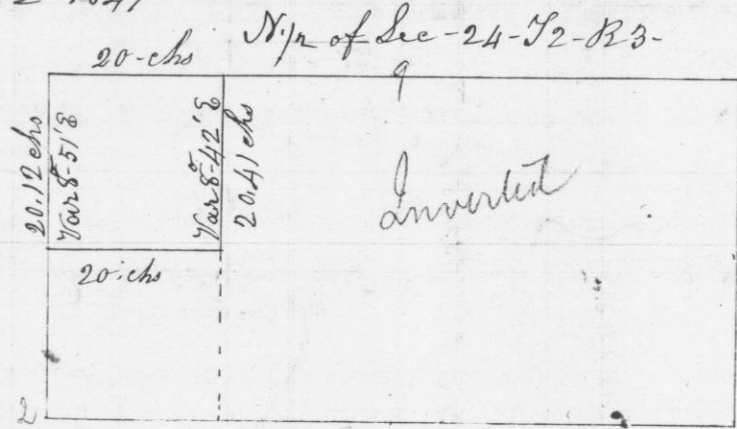 N.1/2 of Sec-24-T2-R3-
20-chs
9
20.12 chs
Var 8°-51'E
Var 8°-42'E
20.41 chs
Inverted
20.chs
2